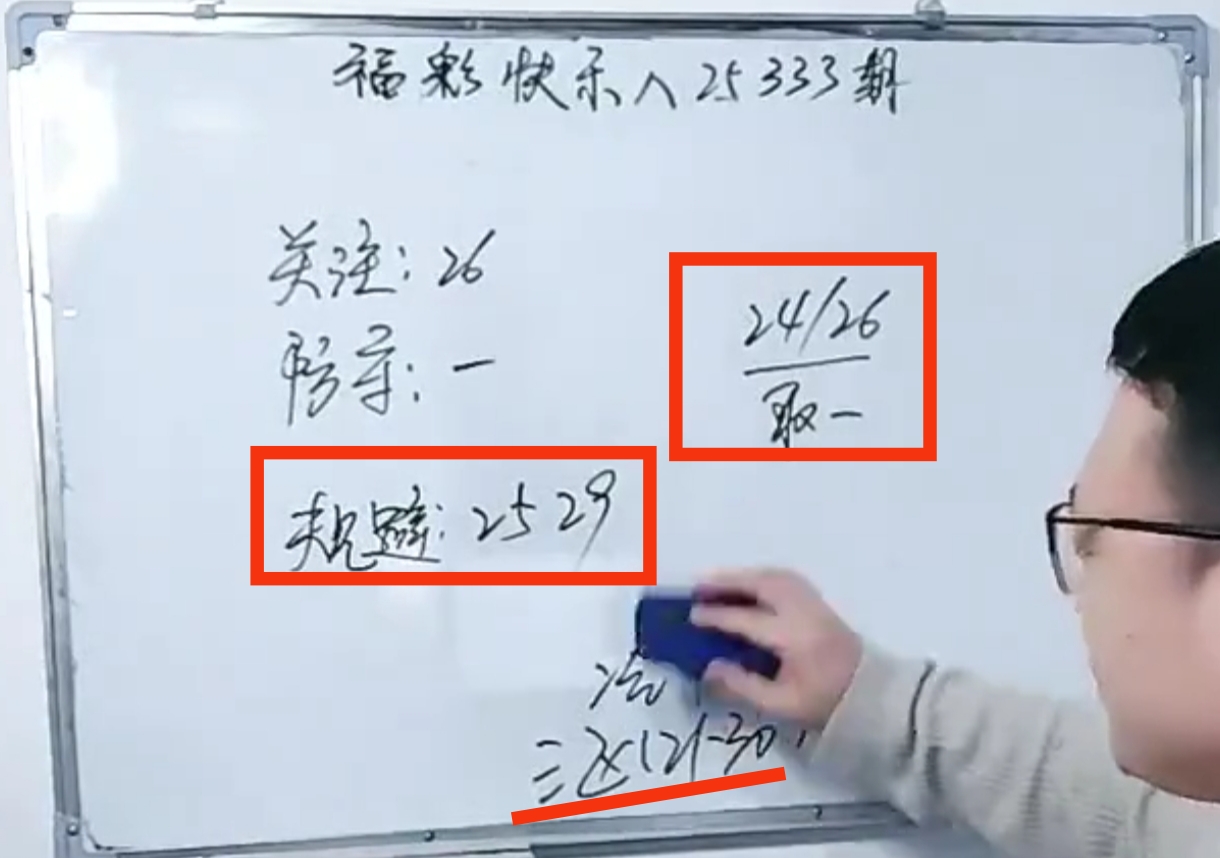 福彩快乐八25333期
关注：26
24/26
取一
防守：一
规避：25 29
三区(21-30